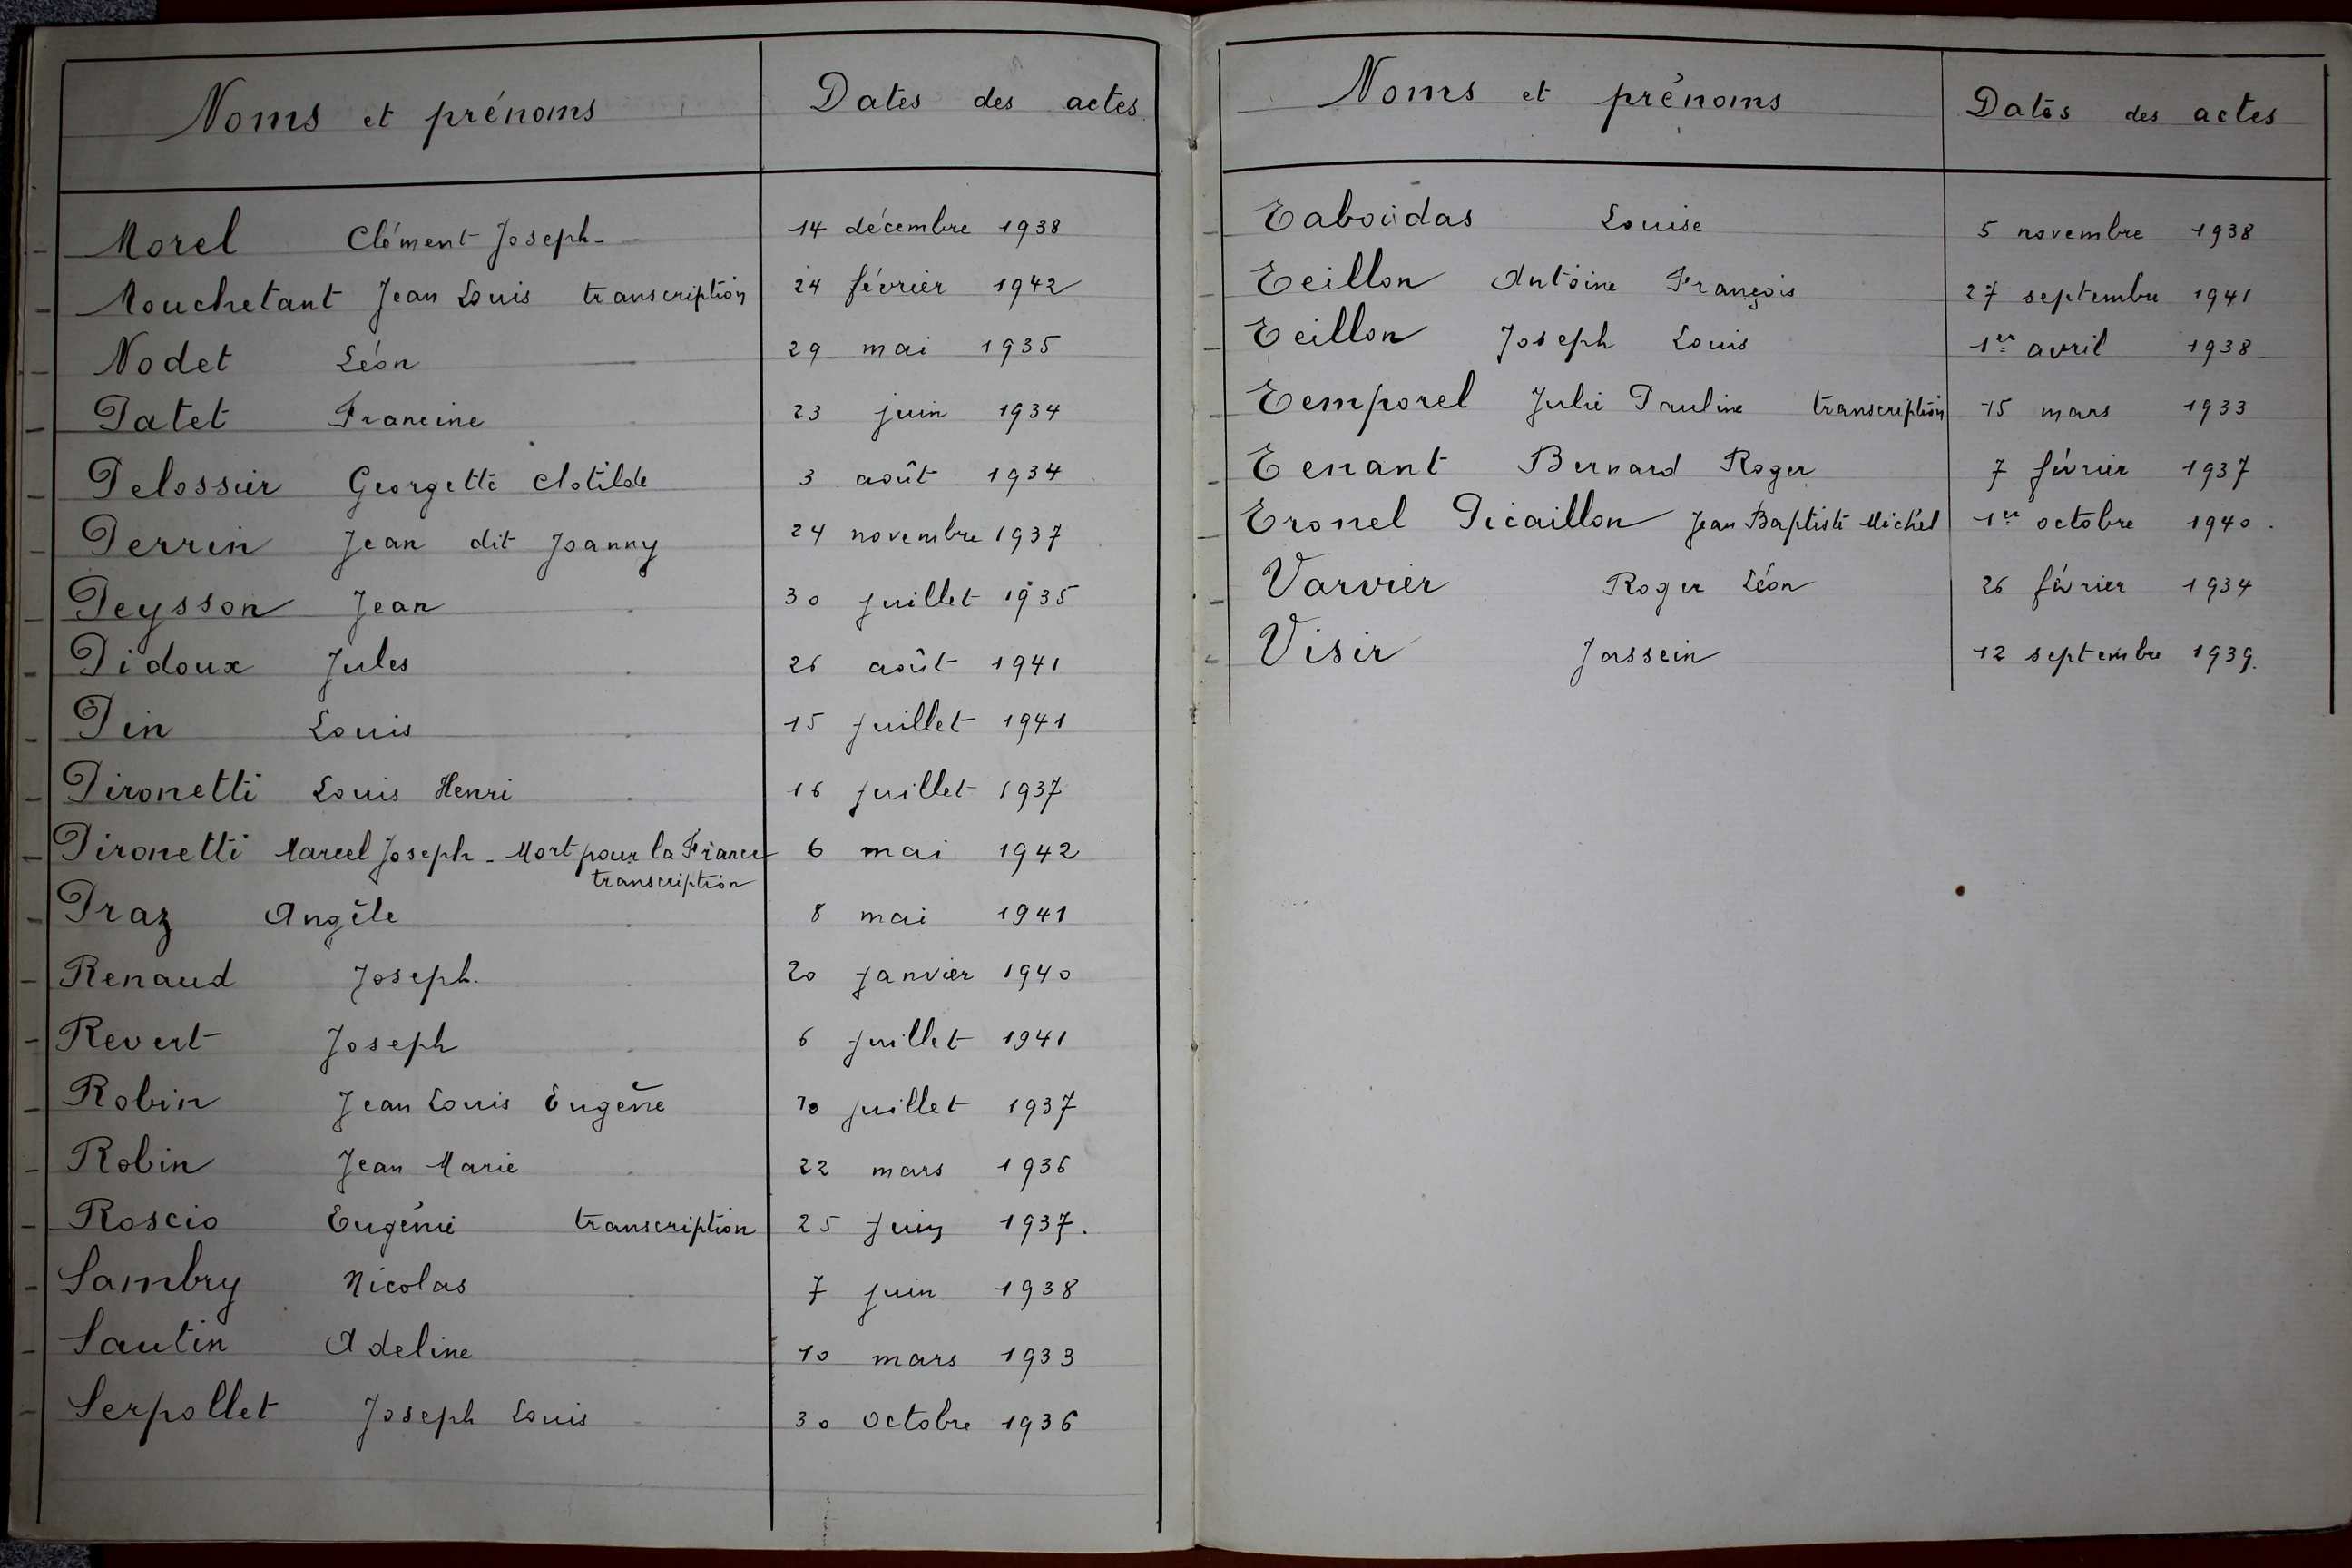 Noms et prénoms Dates des actes
Morel Clément Joseph - 14 décembre 1938
Mouchetant Jean Louis transcription 24 février 1942
Nodet Léon 29 mai 1935
Patet Francine 23 juin 1934
Pelossier Georgette Clotilde 3 août 1934
Perrin Jean dit Joanny 24 novembre 1937
Peysson Jean 30 juillet 1935
Pidoux Jules 26 août 1941
Pin Louis 15 juillet 1941
Pironetti Louis Henri 16 juillet 1937
Pironetti Marcel Joseph - Mort pour la France 6 mai 1942
transcription
Praz Angèle 8 mai 1941
Renaud Joseph. 20 janvier 1940
Revert Joseph 6 juillet 1941
Robin Jean Louis Eugène juillet 1937
Robin Jean Marie 22 mars 1936
Roscio Eugénie transcription 25 juin 1937.
Sambry Nicolas 7 juin 1938
Sautin Adeline 10 mars 1933
Serpollet Joseph Louis 30 octobre 1936
Noms et prénoms Dates des actes
Taboüdas Louise 5 novembre 1938
Teillon Antoine François 27 septembre 1941
Teillon Joseph Louis 1er avril 1938
Temporel Julie Pauline transcription 15 mars 1933
Tenant Bernard Roger 7 février 1937
Tronel Picaillon Jean Baptiste Michel 1er octobre 1940.
Varvier Roger Léon 26 février 1934
Visir Jassein 12 septembre 1939.